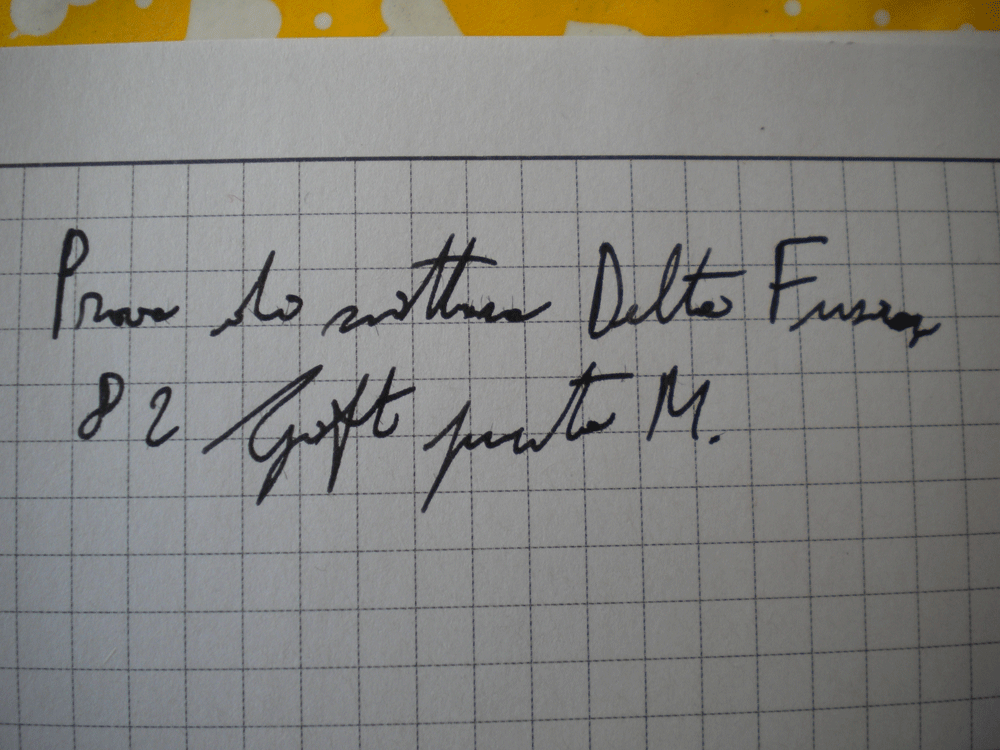 Prova di scrittura Delta Fusion
82 Graft punta M.